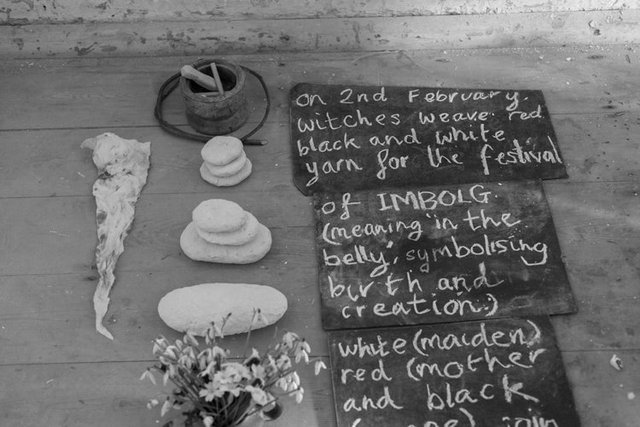 on 2nd February.
witches weave red
black and white
yarn for the festival
of IMBOLG.
(meaning 'in the
belly', symbolising
birth and
creation.)
white (maiden)
red (mother
and black
join